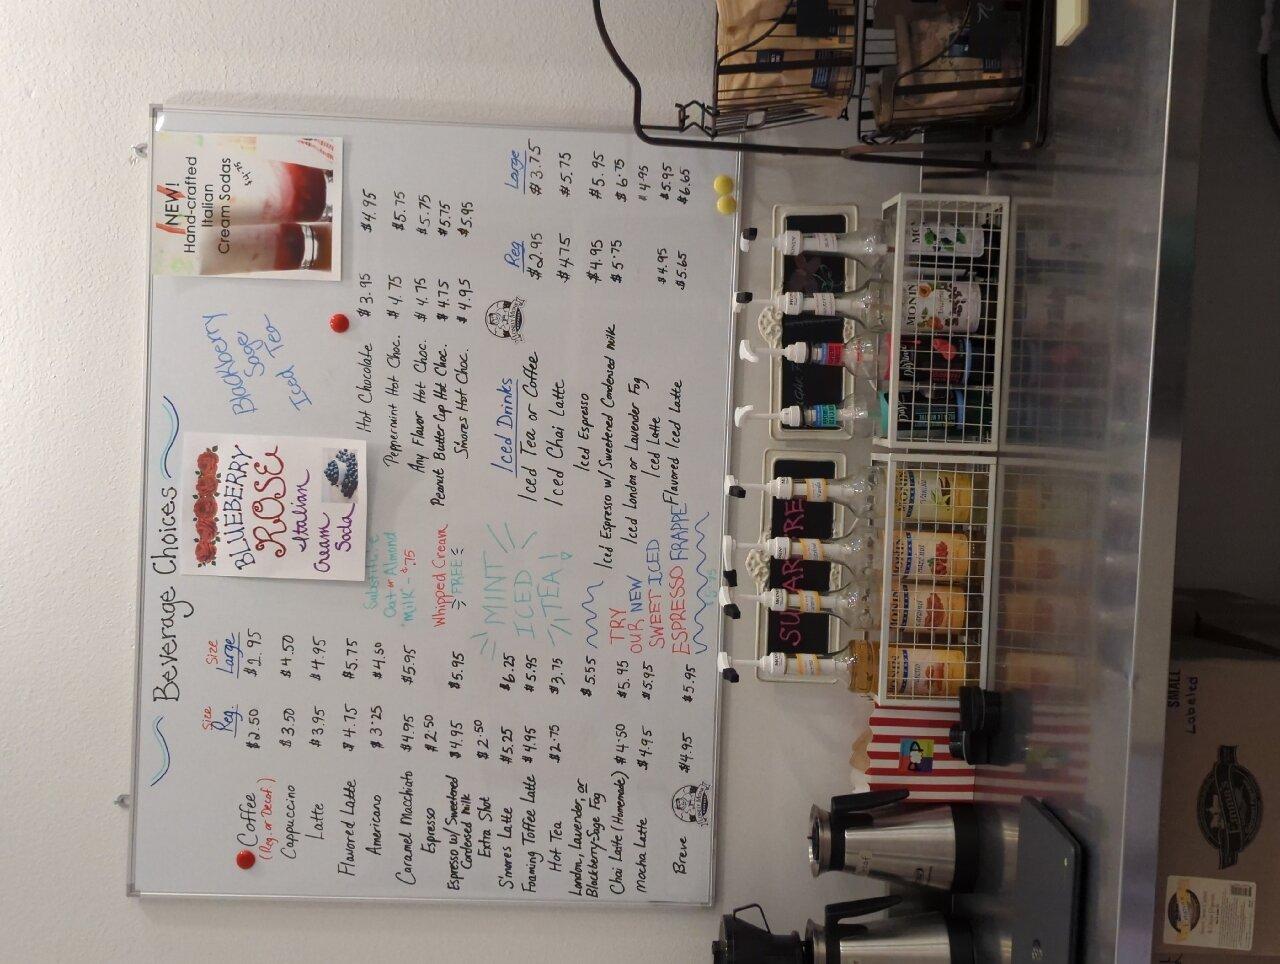 Beverage Choices
Size Size
Reg. Large
Coffee $2.50 $2.95
(Reg. or Decaf.)
Cappuccino $3.50 $4.50
Latte $3.95 $4.95
Flavored Latte $4.75 $5.75
Americano $3.25 $4.50
Caramel Macchiato $4.95 $5.95
Espresso $2.50
Espresso w/ Sweetened $4.95 $5.95
Condensed Milk
Extra Shot $2.50
S'mores Latte $5.25 $6.25
Foaming Toffee Latte $4.95 $5.95
Hot Tea $2.75 $3.75
London, Lavender, or $5.55
Blackberry-Sage Fog
Chai Latte (Homemade) $4.50 $5.95
Mocha Latte $4.95 $5.95
Breve $4.95 $5.95
BLUEBERRY
ROSE
Italian
Cream
Soda
Substitute
Oat or Almond
"Milk" - $.75
Whipped Cream
FREE
MINT
ICED
TEA!
TRY
OUR NEW
SWEET ICED
ESPRESSO FRAPPE
Blackberry
Sage
Iced Tea
NEW!
Hand-crafted
Italian
Cream Sodas
Hot Chocolate $3.95 $4.95
Peppermint Hot Choc. $4.75 $5.75
Any Flavor Hot Choc. $4.75 $5.75
Peanut Butter Cup Hot Choc. $4.75 $5.75
S'mores Hot Choc. $4.95 $5.95
Iced Drinks Reg Large
Iced Tea or Coffee $2.95 $3.75
Iced Chai Latte $4.75 $5.75
Iced Espresso $4.95 $5.95
Iced Espresso w/ Sweetened Condensed Milk $5.75 $6.75
Iced London or Lavender Fog $4.95
Iced Latte $4.95 $5.95
Flavored Iced Latte $5.65 $6.65
SUGAR FREE
MONIN
POP
SMALL
Labeled